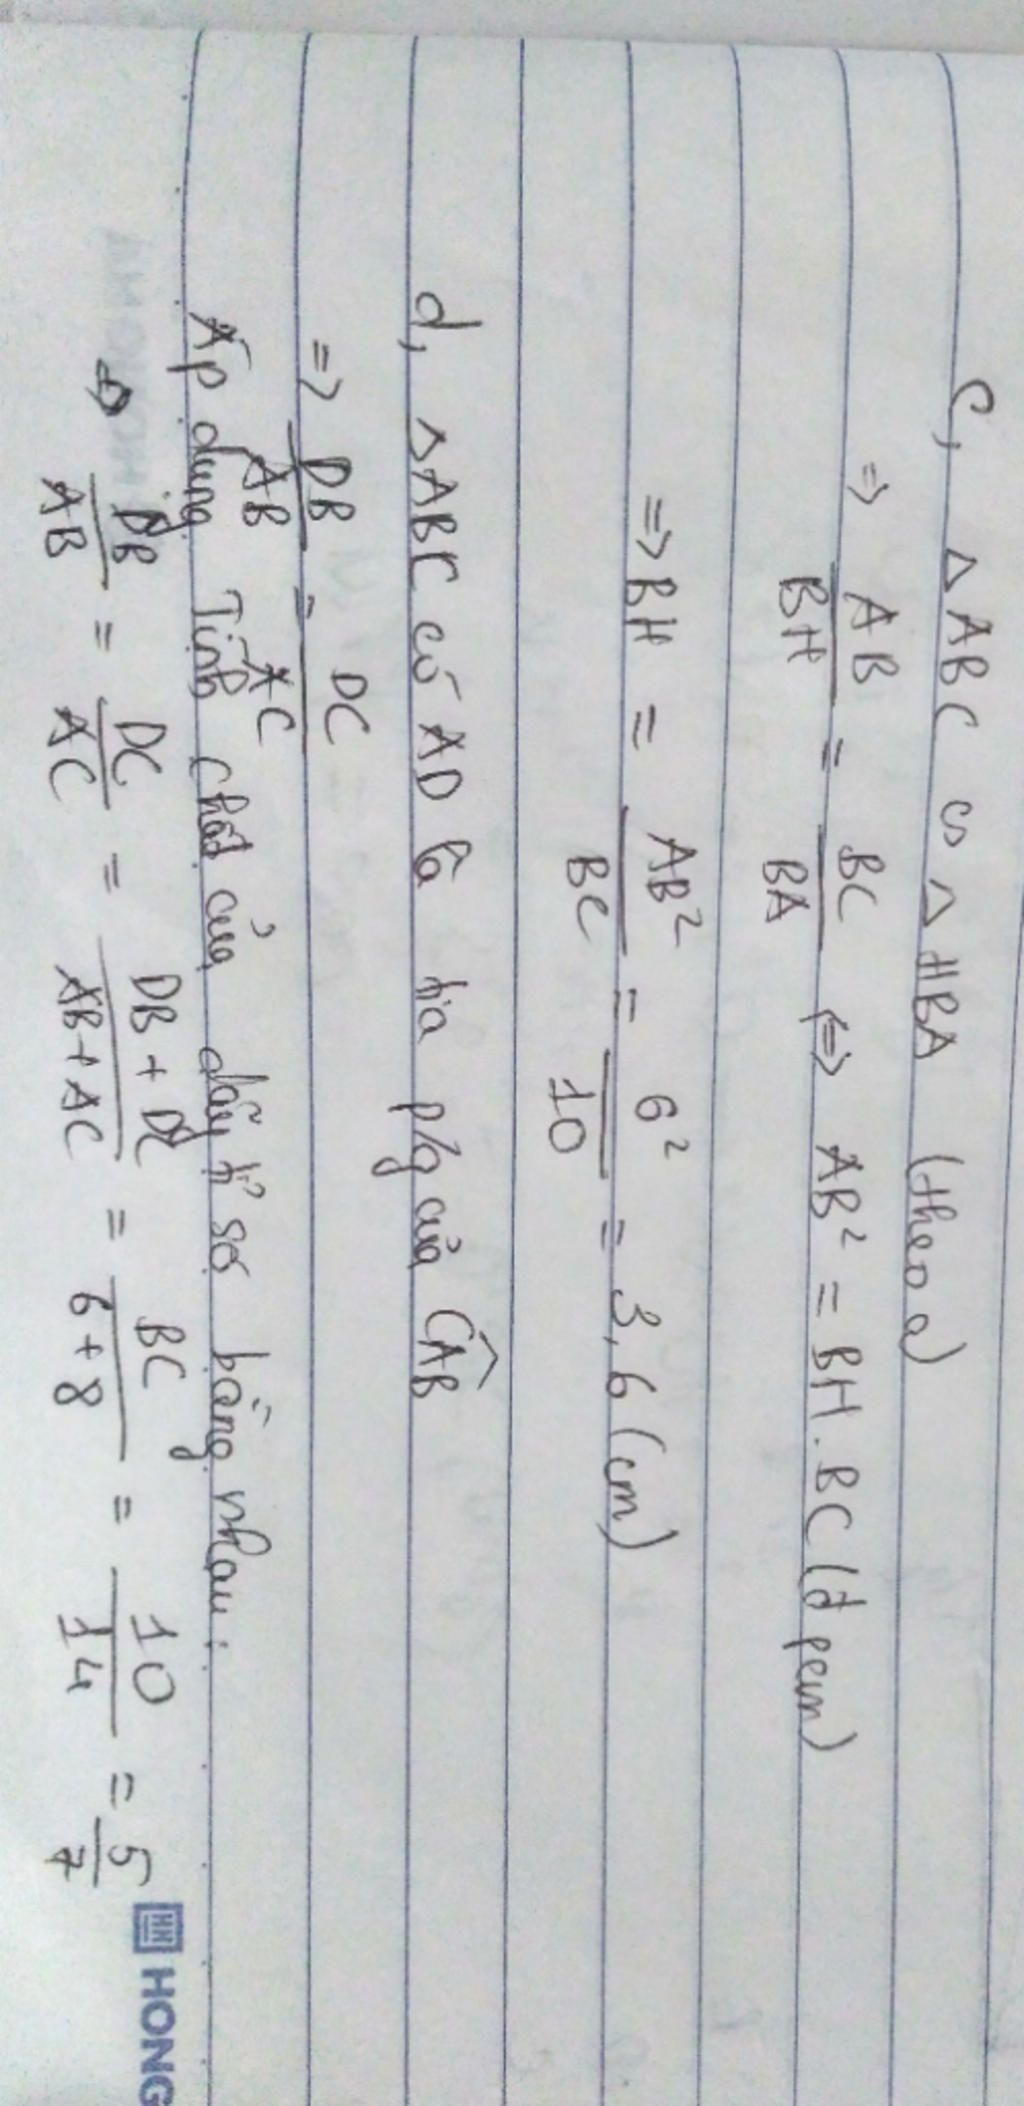 c, △ABC ∽ △HBA (theo a)
=> AB/BH = BC/BA <=> AB² = BH.BC (đpcm)
=> BH = AB²/BC = 6²/10 = 3,6 (cm)
d, △ABC có AD là tia p/g của CÂB
=> DB/AB = DC/AC
Áp dụng Tính chất của dãy tỉ số bằng nhau:
DB/AB = DC/AC = DB + DC/AB + AC = BC/6 + 8 = 10/14 = 5/7
HONG